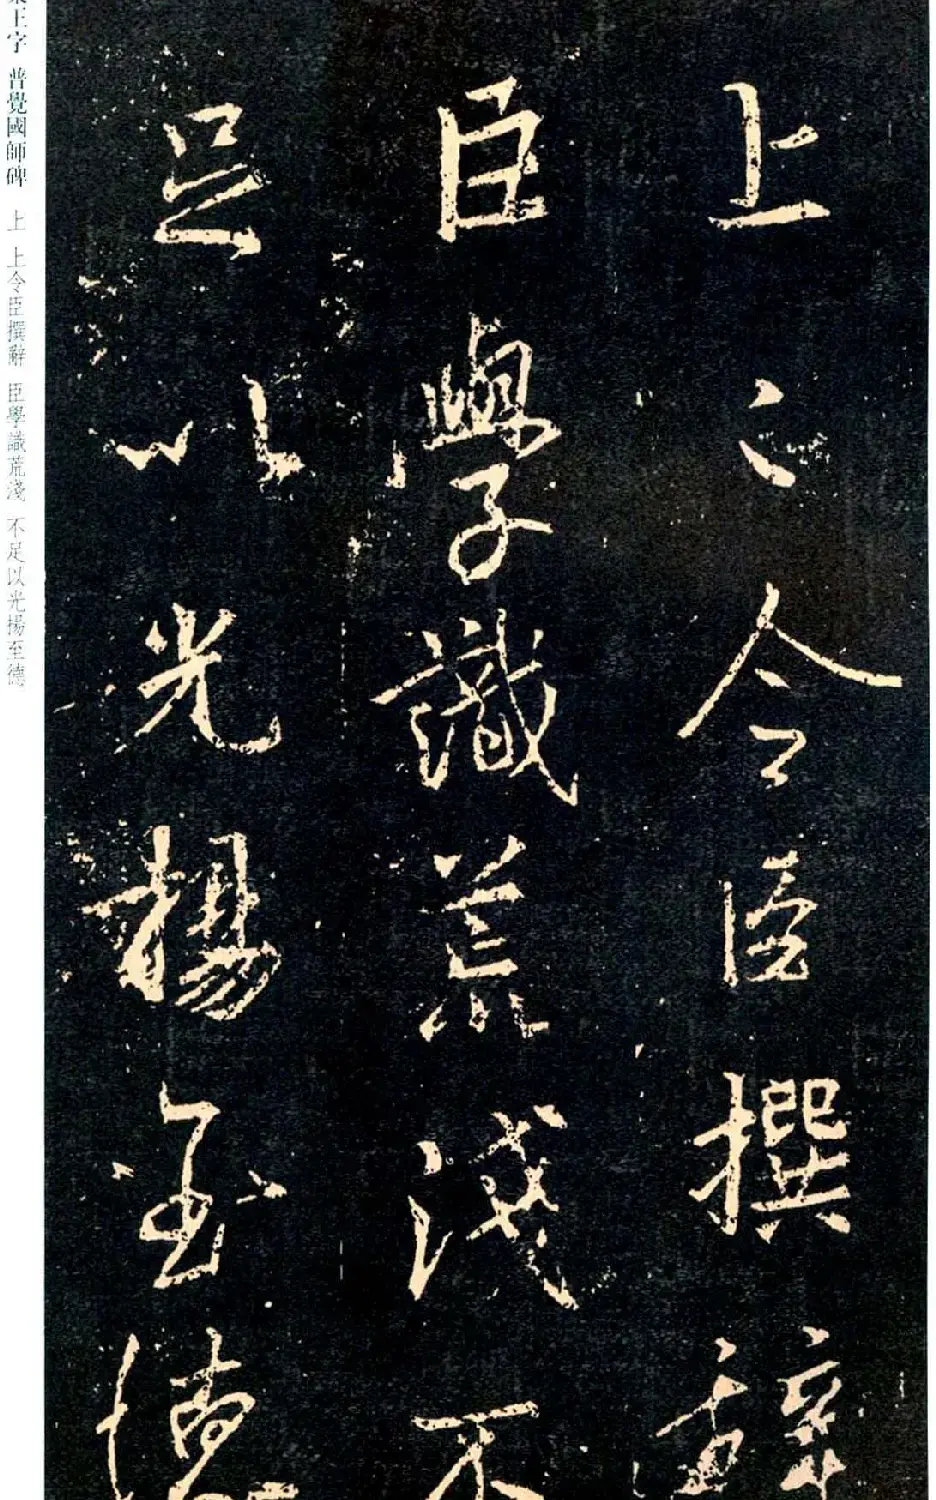 上〻令臣撰辭
臣學識荒淺不
足以光揚至德
王字 普覺國師碑 上 上令臣撰辭 臣學識荒淺 不足以光揚至德